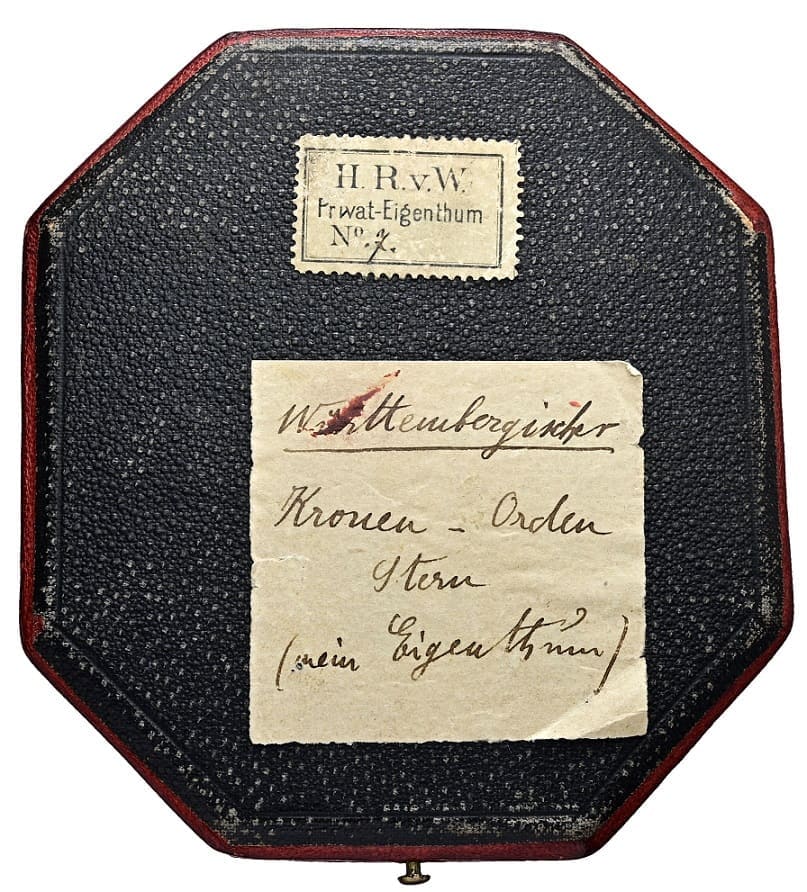 H. R. v. W.
Privat-Eigenthum
Nº. 7.
Württembergischer
Kronen - Orden
Stern
(mein Eigenthum)